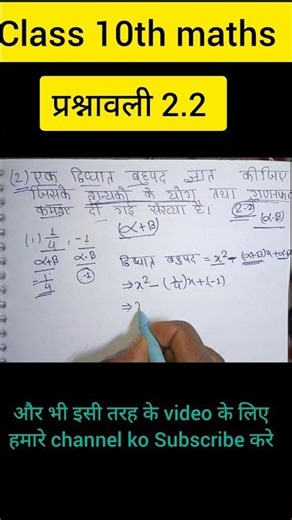 Class 10th maths
प्रश्नावली 2.2
(2) एक द्विघात बहुपद ज्ञात कीजिए
जिसके शून्यकों के योग तथा गुणनफल
क्रमशः दी गई संख्या है। (2.2)
(α+β) (α.β)
(i) 1/4, -1
α+β α.β द्विघात बहुपद = x² - (α+β)x + α.β
= 1/4 (-1) ⇒ x² - (1/4)x + (-1)
⇒
और भी इसी तरह के video के लिए
हमारे channel ko Subscribe करे